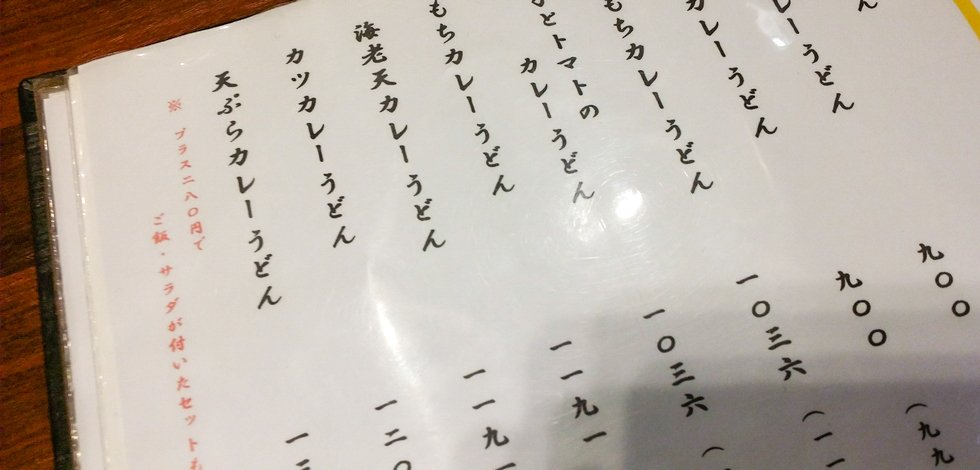 ん
九〇〇
レーうどん
九〇〇（九九
カレーうどん
一〇三六（一一
もちカレーうどん
一〇三六（
とトマトの
カレーうどん
一一九一
もちカレーうどん
一一九
海老天カレーうどん
一二〇
カツカレーうどん
一三
天ぷらカレーうどん
※ プラス二八〇円で
ご飯・サラダが付いたセットも